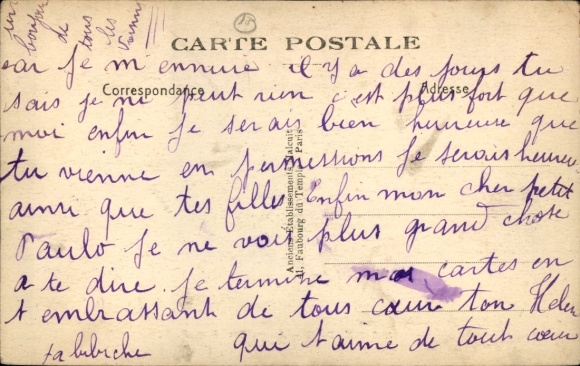 bonjour
de
tous
les
CARTE POSTALE
car je m ennuie il y a des jours tu
Correspondance
Adresse
sais je ni peut rien c'est plus fort que
moi enfin je serais bien heureuse que
tu vienne en permessions je serais heureu
ainsi que tes filles Enfin mon cher petit
Paulo je ne voit plus grand chose
a te dire. je termine mas cartes en
t embrassant de tous cœur ton Helen
qui t'aime de tout cœur
ta bibiche
Anciens Etablissements Malcuit
Faubourg du Temple Paris